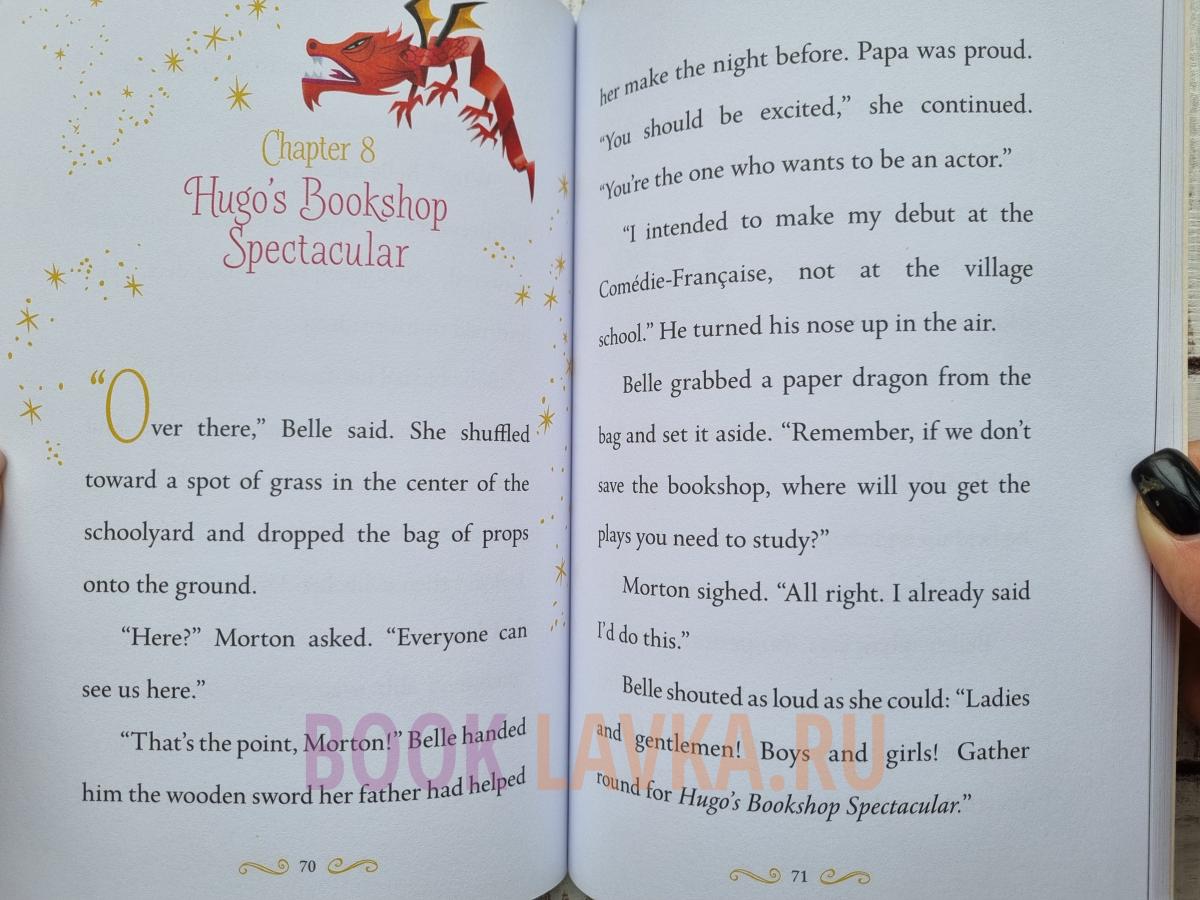 Chapter 8
Hugo's Bookshop
Spectacular
“Over there,” Belle said. She shuffled
toward a spot of grass in the center of the
schoolyard and dropped the bag of props
onto the ground.
“Here?” Morton asked. “Everyone can
see us here.”
“That's the point, Morton!” Belle handed
him the wooden sword her father had helped
70
her make the night before. Papa was proud.
“You should be excited,” she continued.
“You're the one who wants to be an actor.”
“I intended to make my debut at the
Comédie-Française, not at the village
school.” He turned his nose up in the air.
Belle grabbed a paper dragon from the
bag and set it aside. “Remember, if we don't
save the bookshop, where will you get the
plays you need to study?”
Morton sighed. “All right. I already said
I'd do this.”
Belle shouted as loud as she could: “Ladies
and gentlemen! Boys and girls! Gather
round for Hugo's Bookshop Spectacular.”
71
BOOK LAVKA.RU